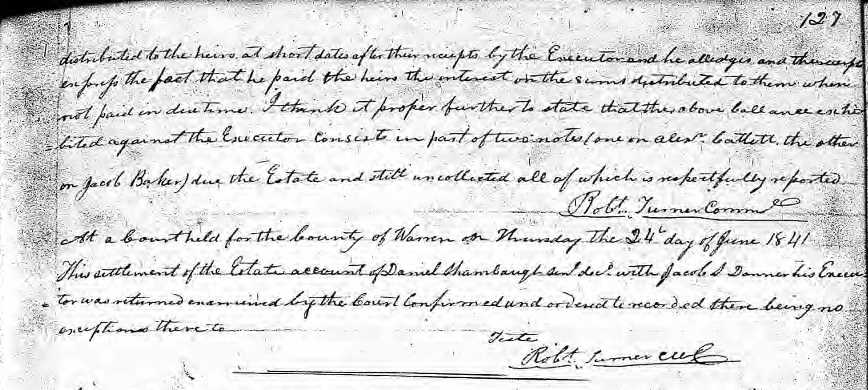 127
distributed to the heirs at short dates after their receipts by the Executor and he alledges and the receipts
express the fact that he paid the heirs the interest on the sums distributed to them when
not paid in due time. I think it proper further to state that the above ballance exhi
=bited against the Executor consists in part of two notes (one on Alexr. Catlett, the other
on Jacob Baker) due the Estate and still uncollected all of which is respectfully reported
Robt. Turner Commr
At a Court held for the County of Warren on Thursday the 24t day of June 1841
This settlement of the Estate account of Daniel Shambaugh senr. decd. with Jacob S Danner his Execu
=tor was returned examined by the Court Confirmed and ordered to recorded there being no
exceptions there to
Teste
Robt. Turner CWC